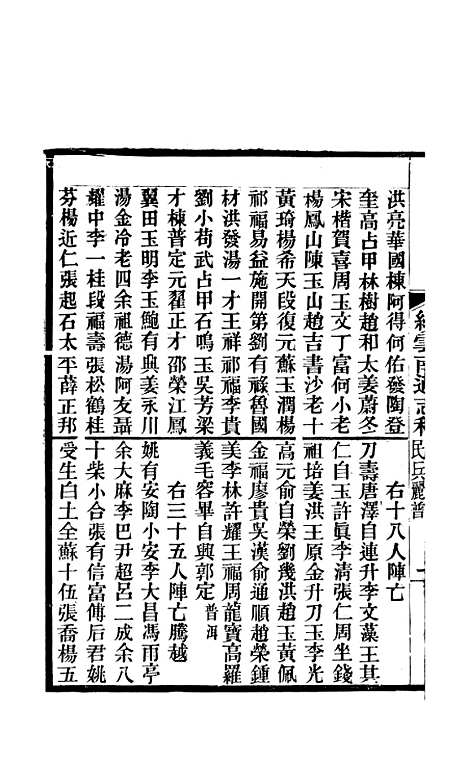 續雲南通志稿 民兵 麗普
洪亮華國棟阿得何佑發陶登 右十八人陣亡
奎高占甲林樹趙和太姜蔚冬刀壽唐澤自連升李文藻王其
宋楷賀喜周玉文丁富何小老仁自玉許眞李清張仁周坐錢
楊鳳山陳玉山趙吉書沙老十祖培姜洪王原金升刀玉李光
黃琦楊希天段復元蘇玉潤楊高元俞自榮劉幾洪趙玉黃佩
祁福易益施開第劉有祿魯國金福廖貴吳漢俞通順趙榮鍾
材洪發湯一才王祥祁福李貴美李林許耀王福周龍寶高羅
劉小苟武占甲石鳴玉吳芳梁義毛容畢自興郭定 普洱
才棟普定元翟正才邵榮江鳳 右三十五人陣亡騰越
翼田玉明李玉鮑有典姜永川姚有安陶小安李大昌馮雨亭
湯金冷老四余祖德湯阿友聶余大麻李巴尹超呂二成余八
耀中李一桂段福壽張松鶴桂十柴小合張有信富傅后君姚
芬楊近仁張起石太平薛正邦受生白土全蘇十伍張喬楊五